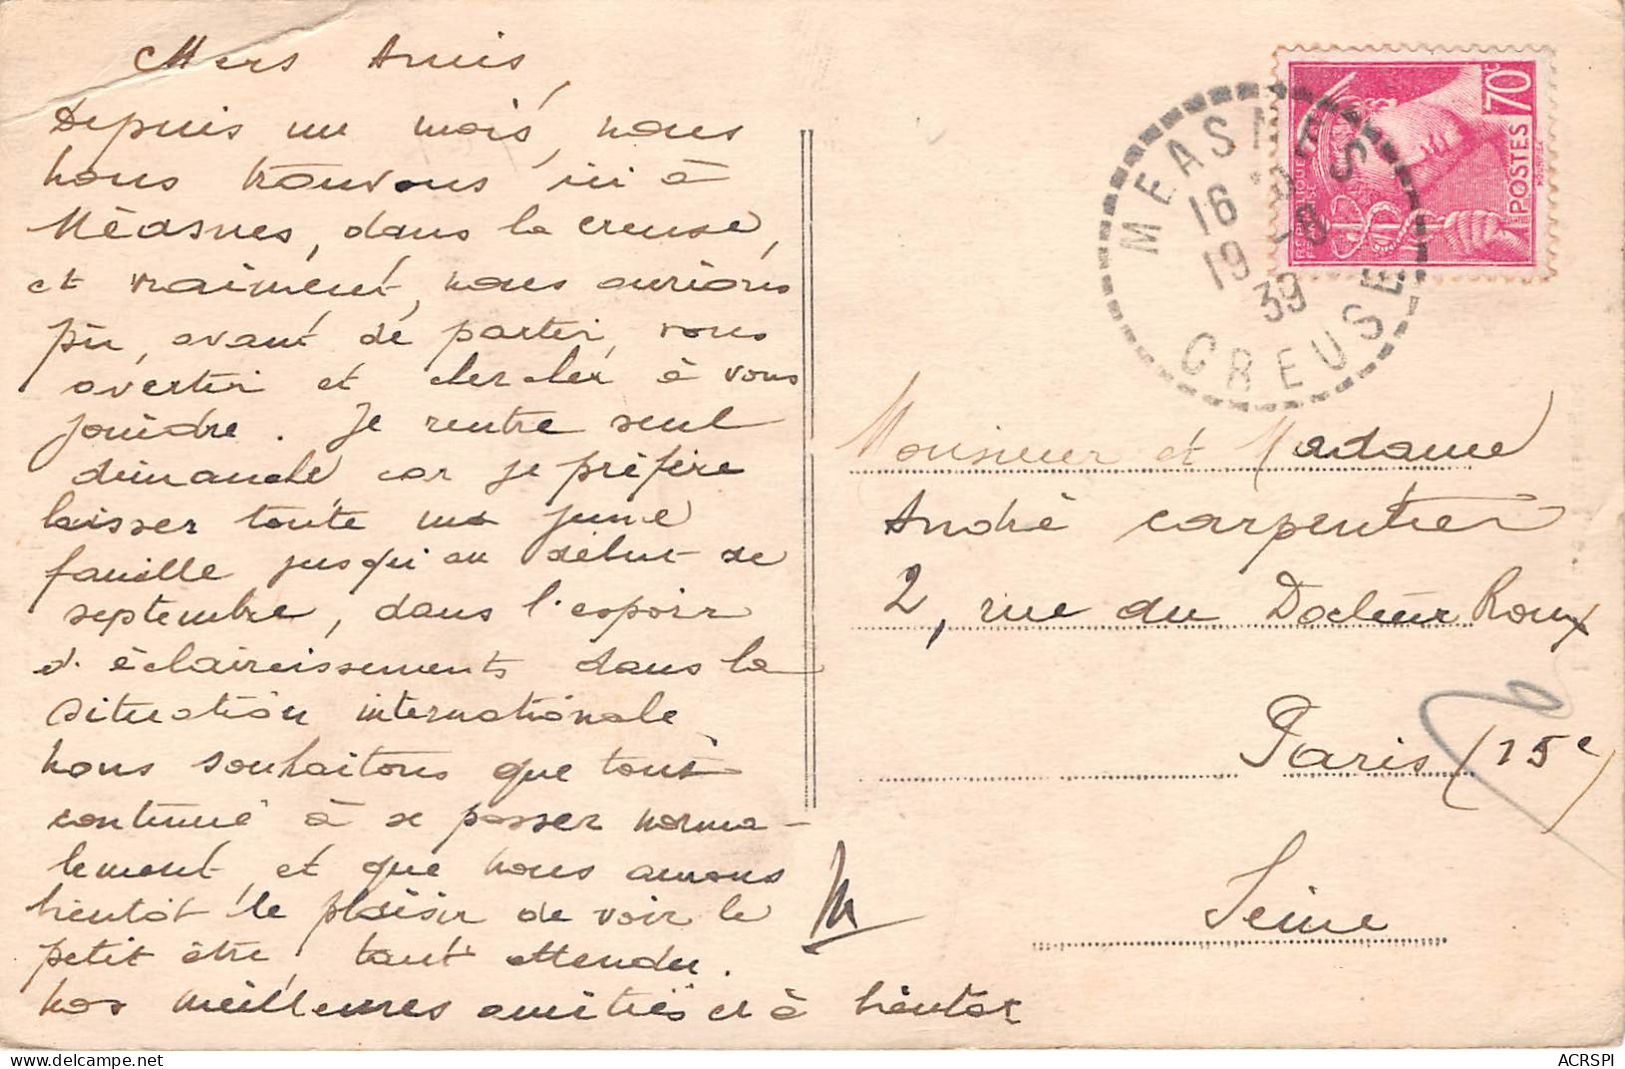 Chers Amis,
Depuis un mois, nous
nous trouvons ici à
Méasnes, dans la Creuse,
et vraiment, nous aurions
pu, avant de partir, vous
avertir et chercher à vous
joindre. Je rentre seul
dimanche car je préfère
laisser toute ma jeune
famille jusqu'au début de
septembre, dans l'espoir
d'éclaircissements dans la
situation internationale
nous souhaitons que tout
continue à se passer norma-
lement, et que nous aurons
bientôt le plaisir de voir le
petit être tant attendu.
nos meilleures amitiés et à bientôt
MEASNES
16
19 -8
39
CREUSE
70c
POSTES
Monsieur et Madame
André Carpentier
2, rue du Docteur Roux
Paris (15e)
Seine
ACRSPI